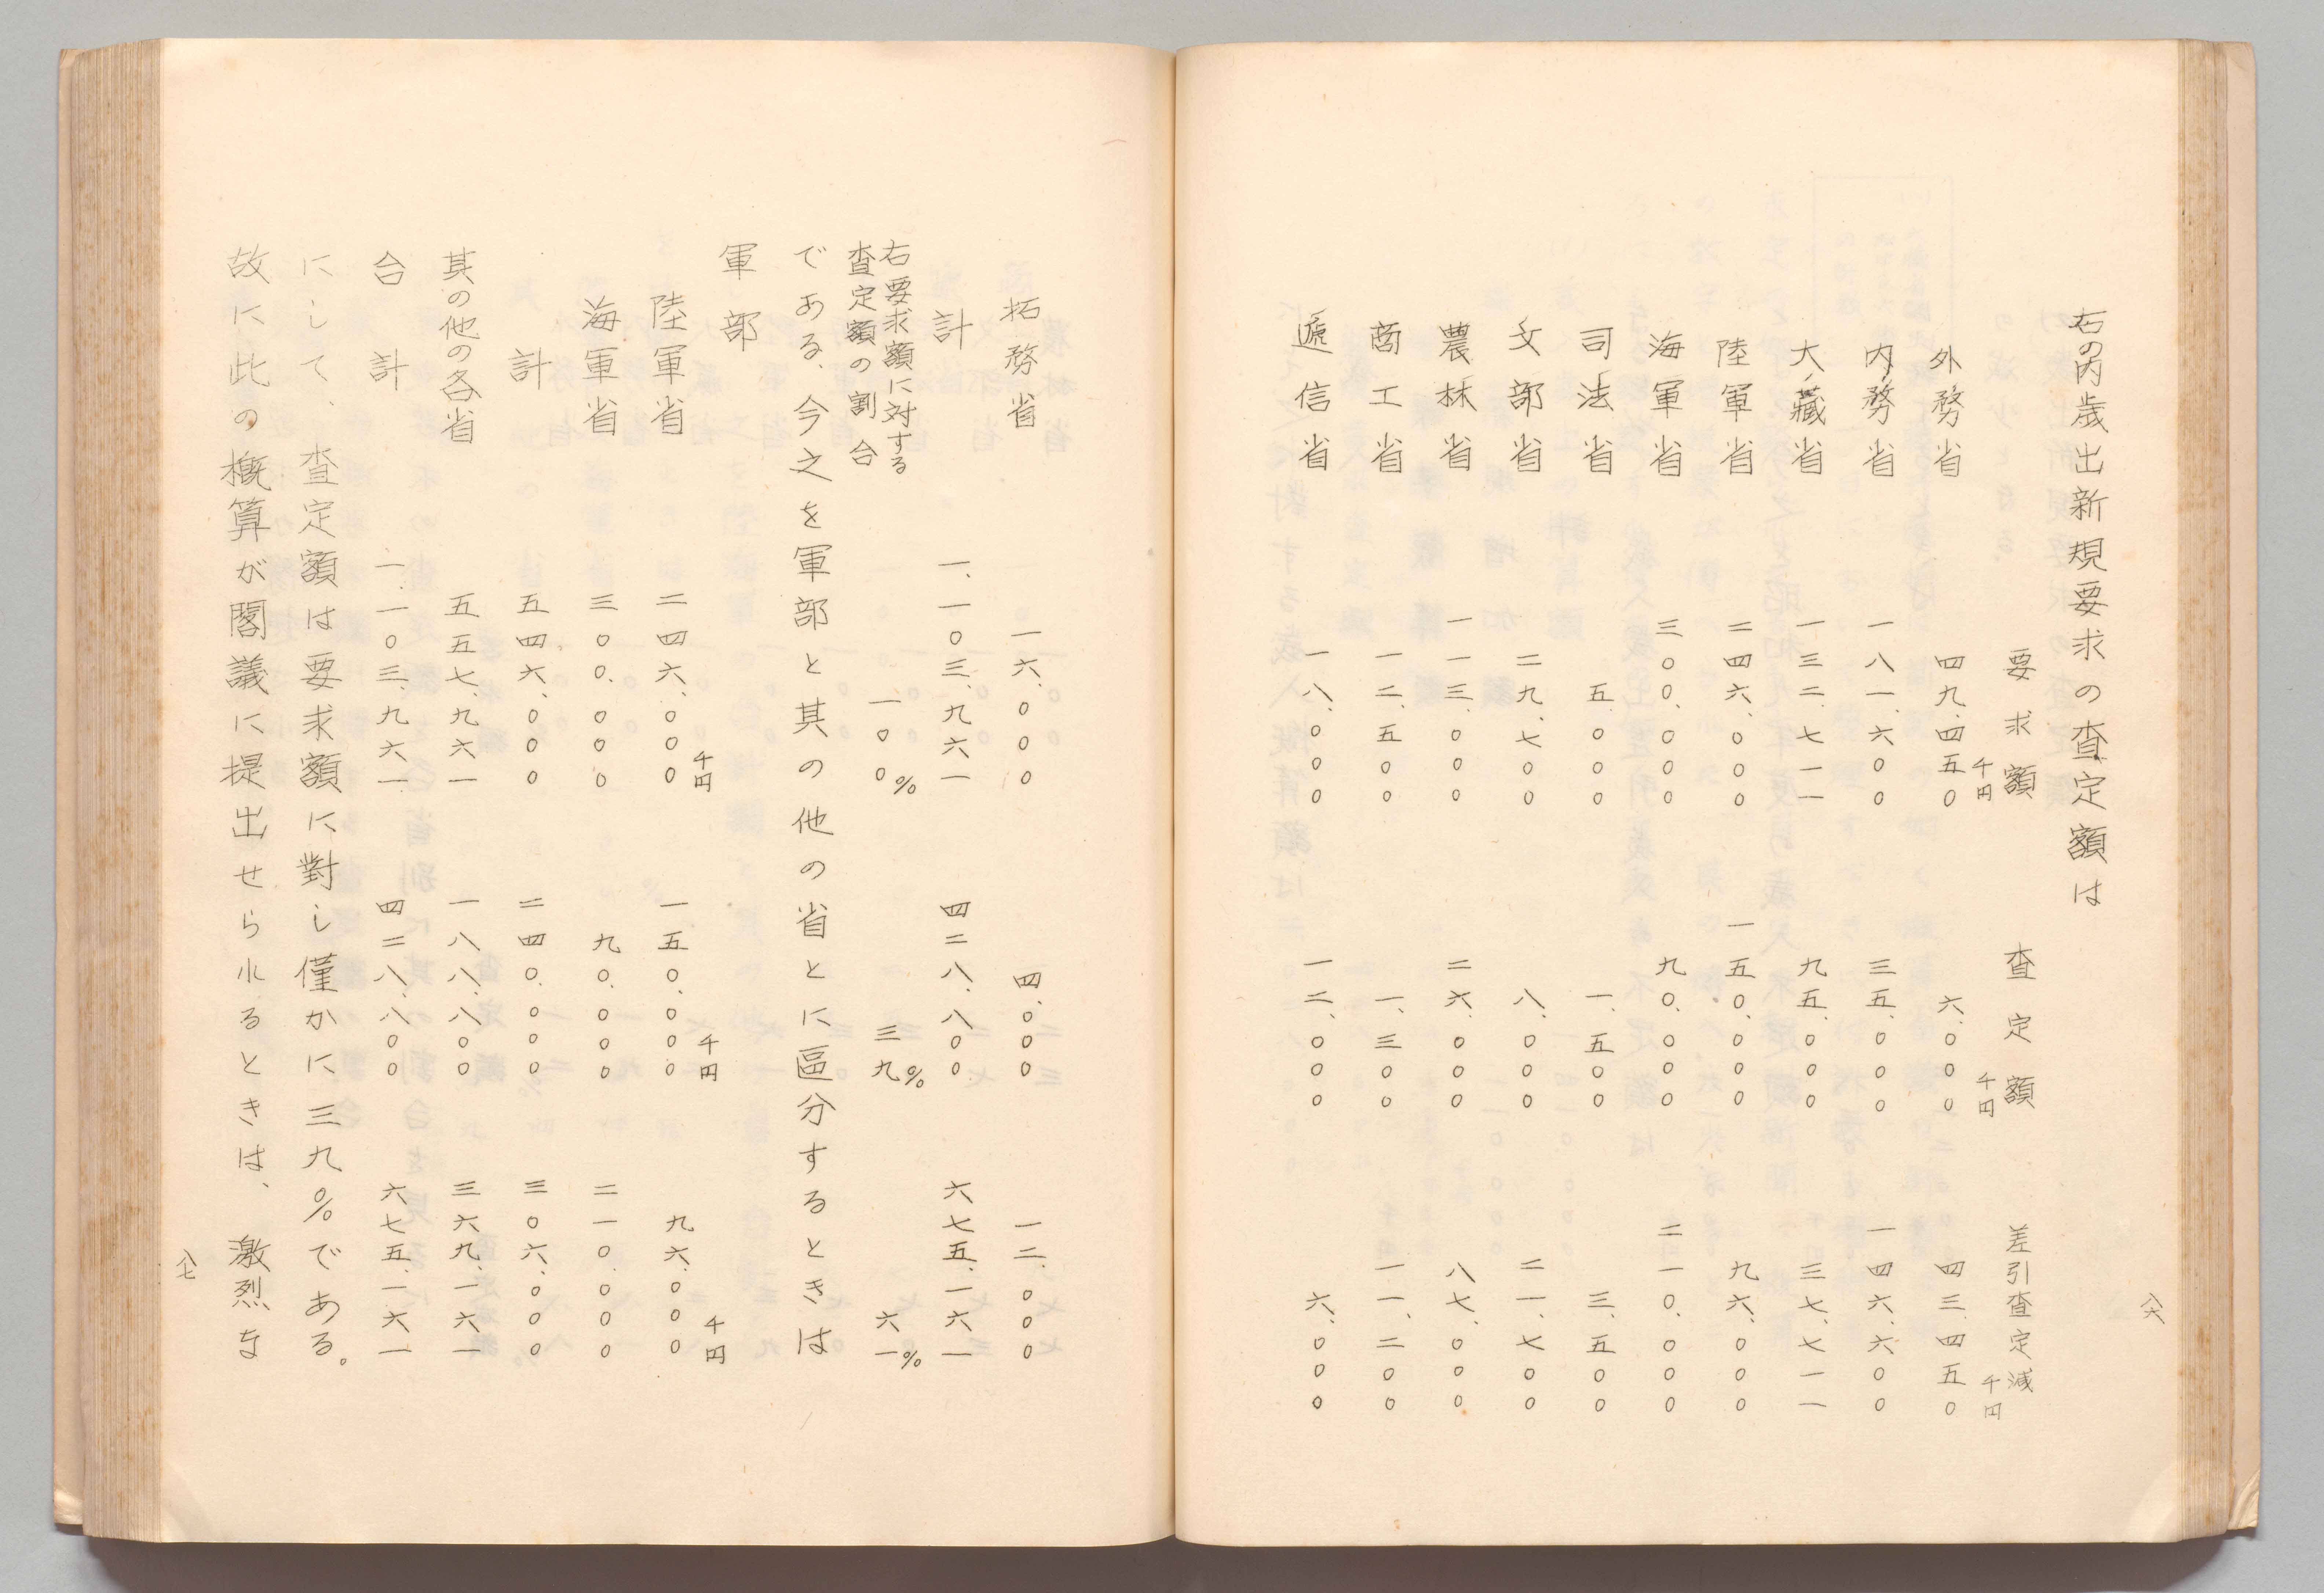 右の内歳出新規要求の査定額は
要求額 査定額 差引査定減
千円 千円 千円
外務省 四九、四五〇 六、〇〇〇 四三、四五〇
内務省 一八一、六〇〇 三五、〇〇〇 一四六、六〇〇
大藏省 一三二、七一一 九五、〇〇〇 三七、七一一
陸軍省 二四六、〇〇〇 一五〇、〇〇〇 九六、〇〇〇
海軍省 三〇〇、〇〇〇 九〇、〇〇〇 二一〇、〇〇〇
司法省 五、〇〇〇 一、五〇〇 三、五〇〇
文部省 二九、七〇〇 八、〇〇〇 二一、七〇〇
農林省 一一三、〇〇〇 二六、〇〇〇 八七、〇〇〇
商工省 一二、五〇〇 一、三〇〇 一一、二〇〇
遞信省 一八、〇〇〇 一二、〇〇〇 六、〇〇〇
八六
拓務省 一六、〇〇〇 四、〇〇〇 一二、〇〇〇
計 一、一〇三、九六一 四二八、八〇〇 六七五、一六一
右要求額に対する
査定額の割合 一〇〇% 三九% 六一%
である、今之を軍部と其の他の省とに區分するときは
軍部 千円 千円 千円
陸軍省 二四六、〇〇〇 一五〇、〇〇〇 九六、〇〇〇
海軍省 三〇〇、〇〇〇 九〇、〇〇〇 二一〇、〇〇〇
計 五四六、〇〇〇 二四〇、〇〇〇 三〇六、〇〇〇
其の他の各省 五五七、九六一 一八八、八〇〇 三六九、一六一
合計 一、一〇三、九六一 四二八、八〇〇 六七五、一六一
にして、査定額は要求額に對し僅かに三九%である。
故に此の概算が閣議に提出せられるときは、激烈な
八七